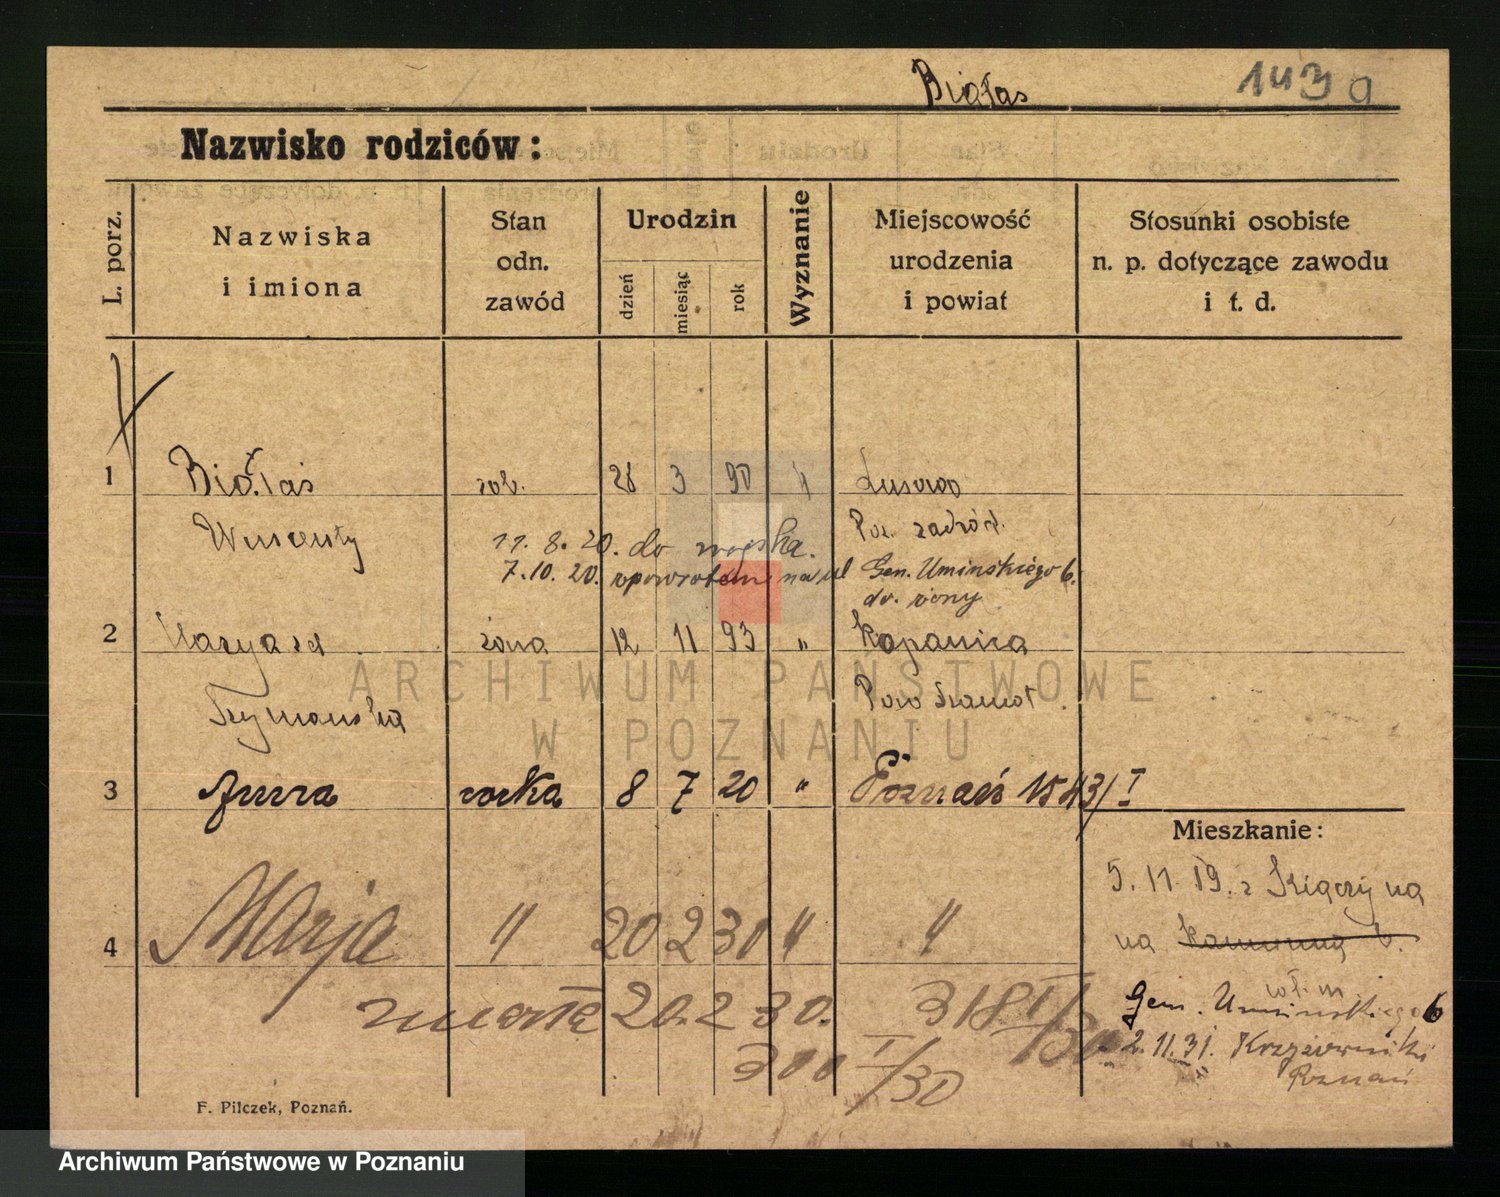 Białas 143 a
Nazwisko rodziców:
L. porz.
Nazwiska
i imiona
Stan
odn.
zawód
Urodzin
dzień
miesiąc
rok
Wyznanie
Miejscowość
urodzenia
i powiat
Stosunki osobiste
n. p. dotyczące zawodu
i t. d.
1 Białas rob. 28 3 90 " Lusowo
Wincenty
11. 8. 20. do wojska.
7.10. 20. zpowrotem na ul Gen. Umińskiego 6.
do żony
2 żona 12 11 93 " Kopanica
Szymańska
3 Anna córka 8 7 20 " Poznań 1543/I
Mieszkanie:
5. 11. 19. z Książ na
na
4 Marja " 20 2 30 " "
zmarła 20. 2 30. 318 I/30
300 I/30
Gen. Umińskiego 6
2. 11. 31.
Poznań
F. Pilczek, Poznań.
ARCHIWUM PAŃSTWOWE
W POZNANIU
Archiwum Państwowe w Poznaniu